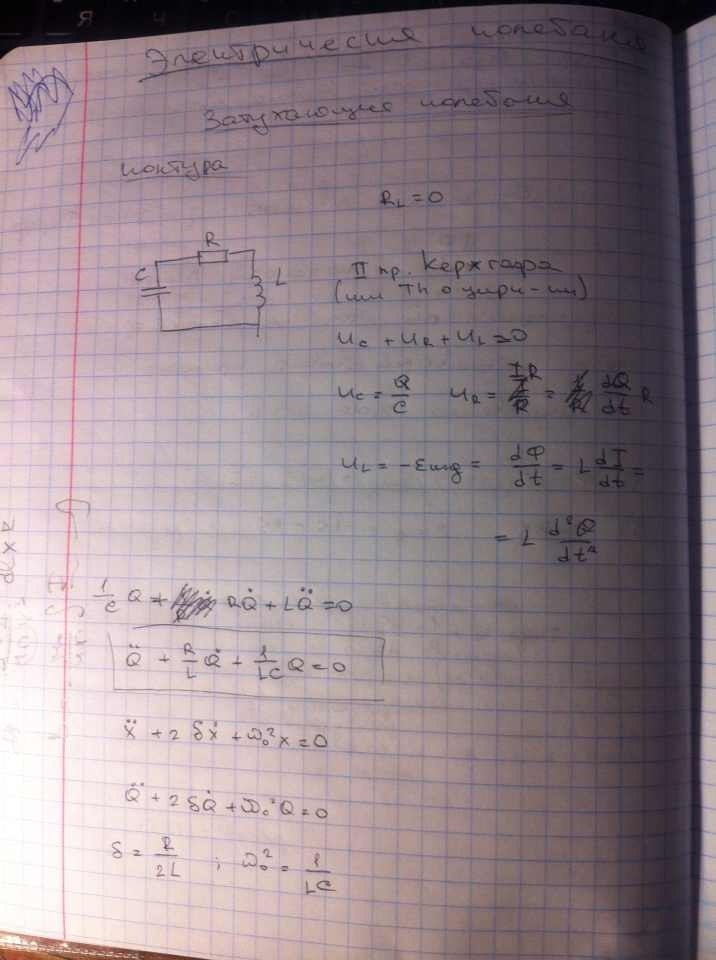 Электрические колебания
Затухающие колебания
контура
R_L = 0
C R L
II пр. Кирхгофа
(или Th о цирк-ии)
u_C + u_R + u_L = 0
u_C = Q/C u_R = IR = dQ/dt R
u_L = -ε инд = dФ/dt = L dI/dt =
= L d²Q/dt²
1/C Q + RQ̇ + LQ̈ = 0
Q̈ + R/L Q̇ + 1/LC Q = 0
ẍ + 2δẋ + ω₀²x = 0
Q̈ + 2δQ̇ + ω₀²Q = 0
δ = R/2L ; ω₀² = 1/LC